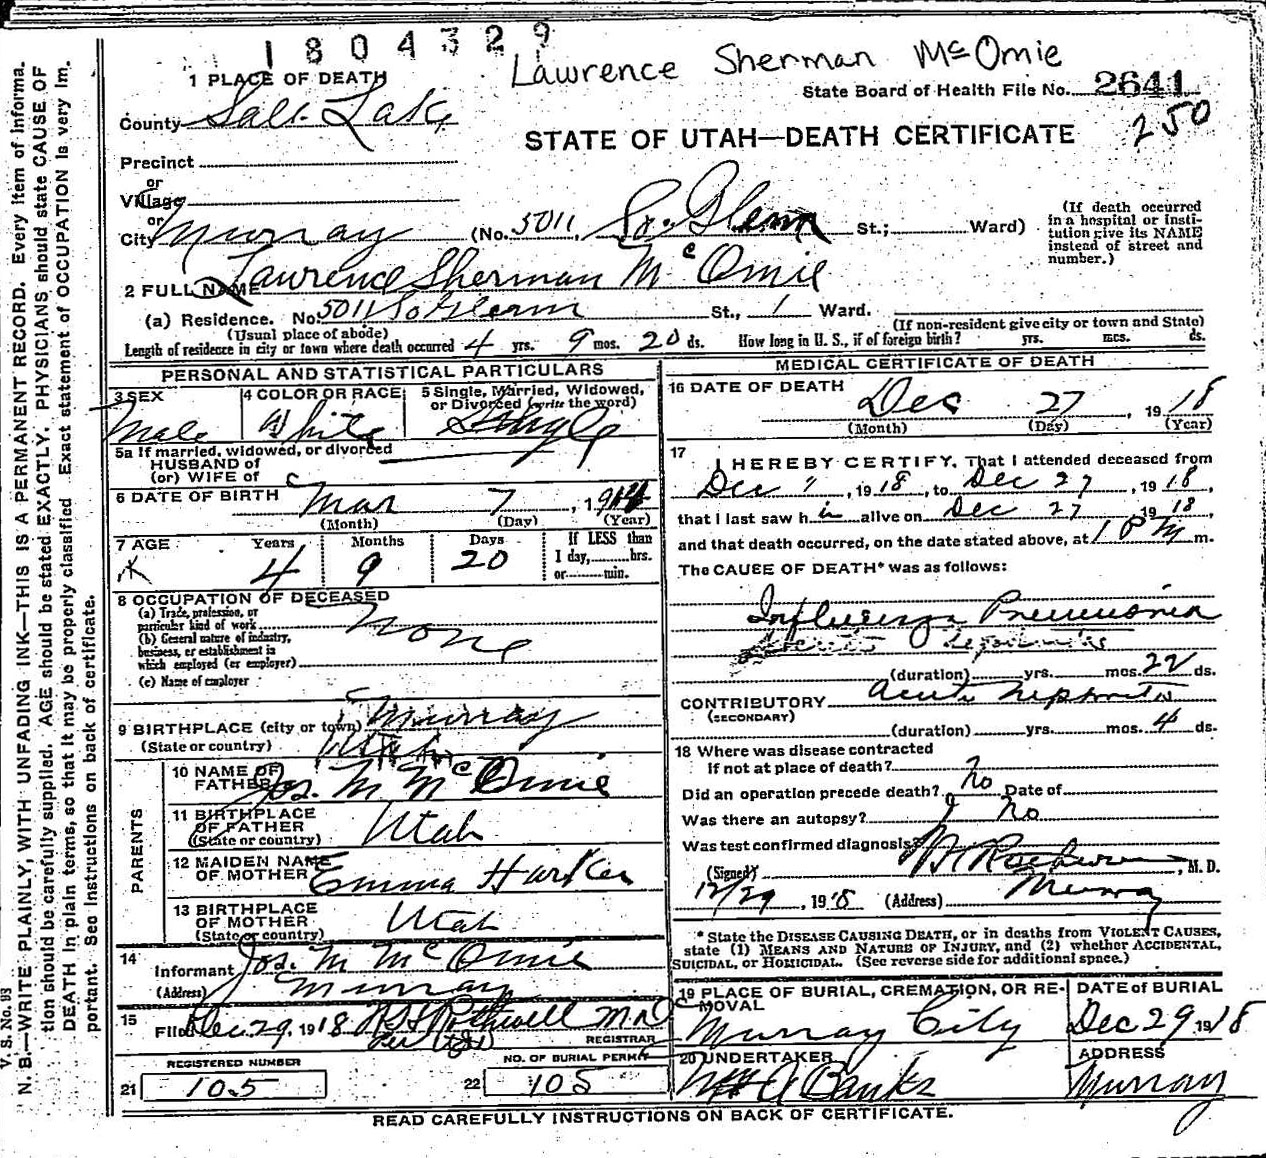 1804329
Lawrence Sherman McOmie
1 PLACE OF DEATH
State Board of Health File No. 2641
250
County Salt Lake
STATE OF UTAH—DEATH CERTIFICATE
Precinct
or
Village
or
City Murray (No. 5011, So. Glenn St.; Ward)
(If death occurred in a hospital or institution give its NAME instead of street and number.)
2 FULL NAME Lawrence Sherman McOmie
(a) Residence. No. 5011 So Glenn St., 1 Ward.
(Usual place of abode) (If non-resident give city or town and State)
Length of residence in city or town where death occurred 4 yrs. 9 mos. 20 ds. How long in U. S., if of foreign birth? yrs. mos. ds.
PERSONAL AND STATISTICAL PARTICULARS
3 SEX
Male
4 COLOR OR RACE
White
5 Single, Married, Widowed,
or Divorced (write the word)
Single
5a If married, widowed, or divorced
HUSBAND of
(or) WIFE of
6 DATE OF BIRTH Mar 7, 1914
(Month) (Day) (Year)
7 AGE Years Months Days If LESS than
4 9 20 1 day, hrs.
or min.
8 OCCUPATION OF DECEASED
(a) Trade, profession, or
particular kind of work None
(b) General nature of industry,
business, or establishment in
which employed (or employer)
(c) Name of employer
9 BIRTHPLACE (city or town) Murray
(State or country) Utah
PARENTS
10 NAME OF
FATHER Jos. M McOmie
11 BIRTHPLACE
OF FATHER
(State or country) Utah
12 MAIDEN NAME
OF MOTHER Emma Harker
13 BIRTHPLACE
OF MOTHER
(State or country) Utah
14
Informant Jos. M McOmie
(Address) Murray
15
Filed Dec. 29, 1918 Rothwell M.D
REGISTRAR
REGISTERED NUMBER
21 105
NO. OF BURIAL PERMIT
22 105
MEDICAL CERTIFICATE OF DEATH
16 DATE OF DEATH
Dec 27, 1918
(Month) (Day) (Year)
17
I HEREBY CERTIFY, That I attended deceased from
Dec , 1918, to Dec 27, 1918,
that I last saw him alive on Dec 27 1918,
and that death occurred, on the date stated above, at 1 PM m.
The CAUSE OF DEATH* was as follows:
Influenza Pneumonia
(duration) yrs. mos. 22 ds.
CONTRIBUTORY Acute Nephritis
(SECONDARY)
(duration) yrs. mos. 4 ds.
18 Where was disease contracted
if not at place of death?
Did an operation precede death? No Date of
Was there an autopsy? No
Was test confirmed diagnosis?
(Signed) , M. D.
12/29, 1918 (Address) Murray
* State the DISEASE CAUSING DEATH, or in deaths from VIOLENT CAUSES,
state (1) MEANS AND NATURE OF INJURY, and (2) whether ACCIDENTAL,
SUICIDAL, or HOMICIDAL. (See reverse side for additional space.)
19 PLACE OF BURIAL, CREMATION, OR RE-
MOVAL
Murray City
DATE of BURIAL
Dec 29 1918
20 UNDERTAKER
A Banks
ADDRESS
Murray
READ CAREFULLY INSTRUCTIONS ON BACK OF CERTIFICATE.
V. S. No. 93
N. B.—WRITE PLAINLY, WITH UNFADING INK—THIS IS A PERMANENT RECORD. Every item of informa-
tion should be carefully supplied. AGE should be stated EXACTLY. PHYSICIANS should state CAUSE OF
DEATH in plain terms, so that it may be properly classified. Exact statement of OCCUPATION is very im-
portant. See instructions on back of certificate.